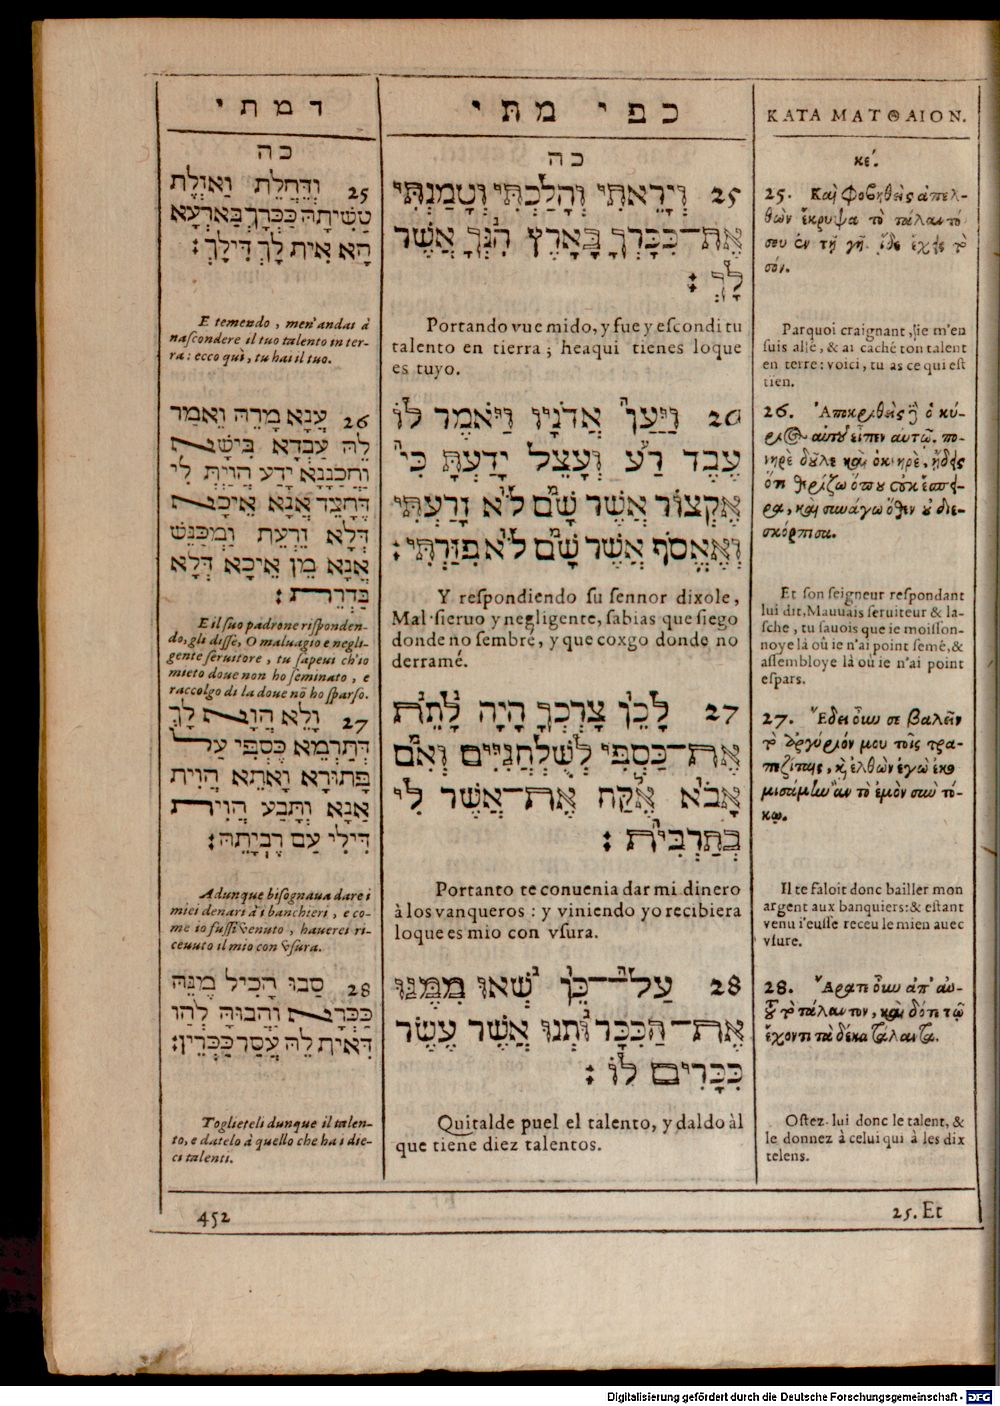 דמתי
כה
25 וְדֶחֲלֵת וְאֶזְלֵת
טַשִׁיתָהּ כַּכְּרָךְ בְּאַרְעָא
הָא אִית לָךְ דִּילָךְ:
E temendo, men'andai à
nascondere il tuo talento in ter-
ra: ecco qui, tu hai il tuo.
26 עֲנָא מָרֵהּ וֶאֵמַר
לֵהּ עַבְדָא בִּישָׁא
וְחַבְנָנָא יָדַע הֲוַיְתְּ לִי
דְּחָצֵד אֲנָא אֵיכָא
דְּלָא זֶרְעֵת וַמְכַנֵּשׁ
אֲנָא מֵן אֵיכָא דְּלָא
בַּדְּרֵת:
E il suo padrone risponden-
do, gli disse, O maluagio e negli-
gente seruitore, tu sapeui ch'io
mieto doue non ho seminato, e
raccolgo di la doue nō ho sparso.
27 וָלֵא הֲוָא לָךְ
דְּתַרְמֵא כֶּסְפִּי עַל
פָּתוּרָא וָאתֵא הֲוִית
אֲנָא וְתָבַע הֲוִית
דִּילִי עַם רֶבִּיתֵהּ:
Adunque bisognaua dare i
miei denari à i banchieri, e co-
me io fussi venuto, hauerei ri-
ceuuto il mio con vsura.
28 סַבוּ הָכִיל מֶנֵּהּ
כַּכְּרָא וְהַבוּהָּ לְהַו
דְּאִית לֵהּ עֲסַר כַּכְּרִין:
Toglieteli dunque il talen-
to, e datelo à quello che ha i die-
ci talenti.
452
כפי מתי
כה
25 וְיָרֵאתִי וְהָלַכְתִּי וְטָמַנְתִּי
אֶת־כִּכָּרְךָ בָּאָרֶץ הִנְּךָ אֲשֶׁר
לָךְ:
Portando vue mido, y fue y escondi tu
talento en tierra; heaqui tienes loque
es tuyo.
26 וַיַּעַן אֲדֹנָיו וַיֹּאמֶר לוֹ
עֶבֶד רַע וְעָצֵל יָדַעְתָּ כִּי
אֶקְצוֹר אֲשֶׁר שָׁם לֹא זָרַעְתִּי
וְאֶאֱסֹף אֲשֶׁר שָׁם לֹא פִזַּרְתִּי:
Y respondiendo su sennor dixole,
Mal sieruo y negligente, sabias que siego
donde no sembré, y que coxgo donde no
derramé.
27 לָכֵן צָרְכְךָ הָיָה לָתֵת
אֶת־כַּסְפִּי לְשֻׁלְחָנִיִּים וְאִם
אָבֹא אֶקַּח אֶת־אֲשֶׁר לִי
בְּתַרְבִּית:
Portanto te conuenia dar mi dinero
à los vanqueros: y viniendo yo recibiera
loque es mio con vsura.
28 עַל־כֵּן שְׂאוּ מִמֶּנּוּ
אֶת־הַכִּכָּר וּתְנוּ אֲשֶׁר עֶשֶׂר
כִּכָּרִים לוֹ:
Quitalde puel el talento, y daldo àl
que tiene diez talentos.
ΚΑΤΑ ΜΑΤΘΑΙΟΝ.
κε'.
25. Καὶ φοβηθεὶς ἀπελ-
θὼν ἔκρυψα τὸ τάλαντό
σου ἐν τῇ γῇ. ἴδε ἔχεις τὸ
σόν.
Parquoi craignant, ie m'en
suis allé, & ai caché ton talent
en terre: voici, tu as ce qui est
tien.
26. Ἀποκριθεὶς δὲ ὁ κύ-
ριος αὐτοῦ εἶπεν αὐτῷ. πο-
νηρὲ δοῦλε καὶ ὀκνηρὲ, ᾔδεις
ὅτι θερίζω ὅπου οὐκ ἔσπει-
ρα, καὶ συνάγω ὅθεν οὐ διε-
σκόρπισα.
Et son seigneur respondant
lui dit, Mauuais seruiteur & la-
sche, tu sauois que ie moisson-
noye là où ie n'ai point semé, &
assembloye là où ie n'ai point
espars.
27. Ἔδει οὖν σε βαλεῖν
τὸ ἀργύριόν μου τοῖς τρα-
πεζίταις, κỳ ἐλθὼν ἐγὼ ἐκο
μισάμην ἂν τὸ ἐμὸν σὺν τό-
κῳ.
Il te faloit donc bailler mon
argent aux banquiers: & estant
venu i'eusse receu le mien auec
vsure.
28. Ἄρατε οὖν ἀπ' αὐ-
τοῦ τὸ τάλαντον, καὶ δότε τῷ
ἔχοντι τὰ δέκα τάλαντα.
Ostez-lui donc le talent, &
le donnez à celui qui à les dix
telens.
25. Et
Digitalisierung gefördert durch die Deutsche Forschungsgemeinschaft - DFG